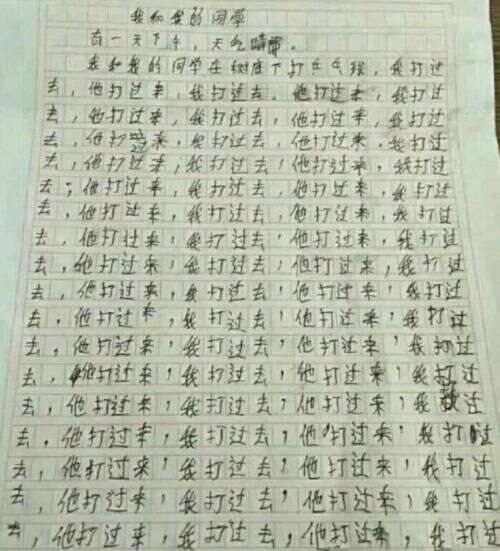 我和我的同学
有一天下午,天气晴朗。
我和我的同学在树底下打乒乓球,我打过
去,他打过来,我打过去,他打过来,我打过
去,他打过来,我打过去,他打过来,我打过
去,他打过来,我打过去,他打过来,我打过
去,他打过来,我打过去,他打过来,我打过
去,他打过来,我打过去,他打过来,我打过
去,他打过来,我打过去,他打过来,我打过
去,他打过来,我打过去,他打过来,我打过
去,他打过来,我打过去,他打过来,我打过
去,他打过来,我打过去,他打过来,我打过
去,他打过来,我打过去,他打过来,我打过
去,他打过来,我打过去,他打过来,我打过
去,他打过来,我打过去,他打过来,我打过
去,他打过来,我打过去,他打过来,我过
去,他打过来,我打过去,他打过来,我打过
去,他打过来,我打过去,他打过来,我打过
去,他打过来,我打过去,他打过来,我打过
去,他打过来,我打过去,他打过来,我打过